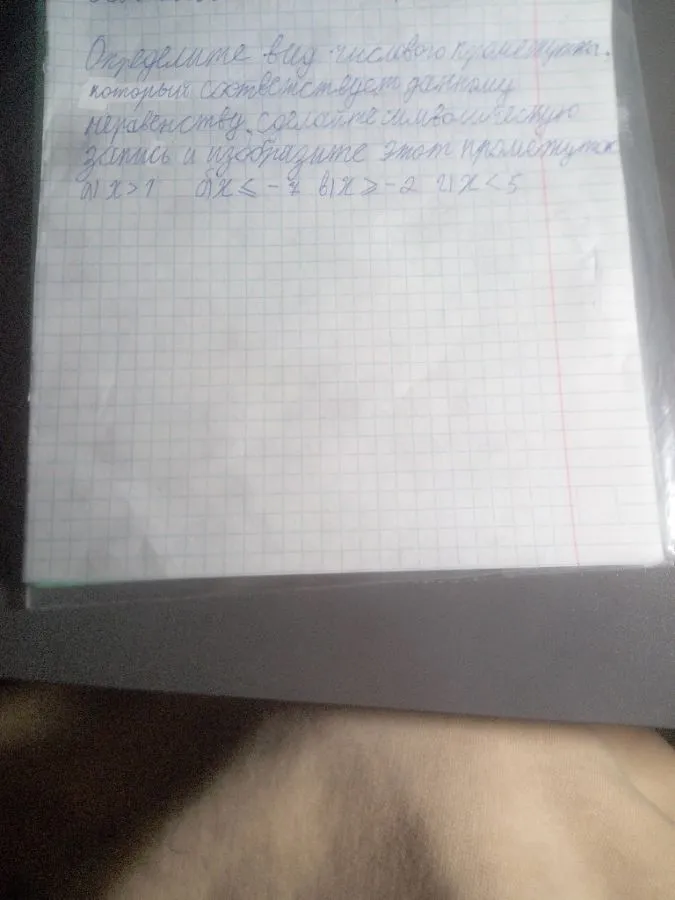 Определите вид числового промежутка,
который соответствует данному
неравенству, сделайте символическую
запись и изобразите этот промежуток
а) x > 1 б) x ≤ - 7 в) x ≥ - 2 г) x < 5